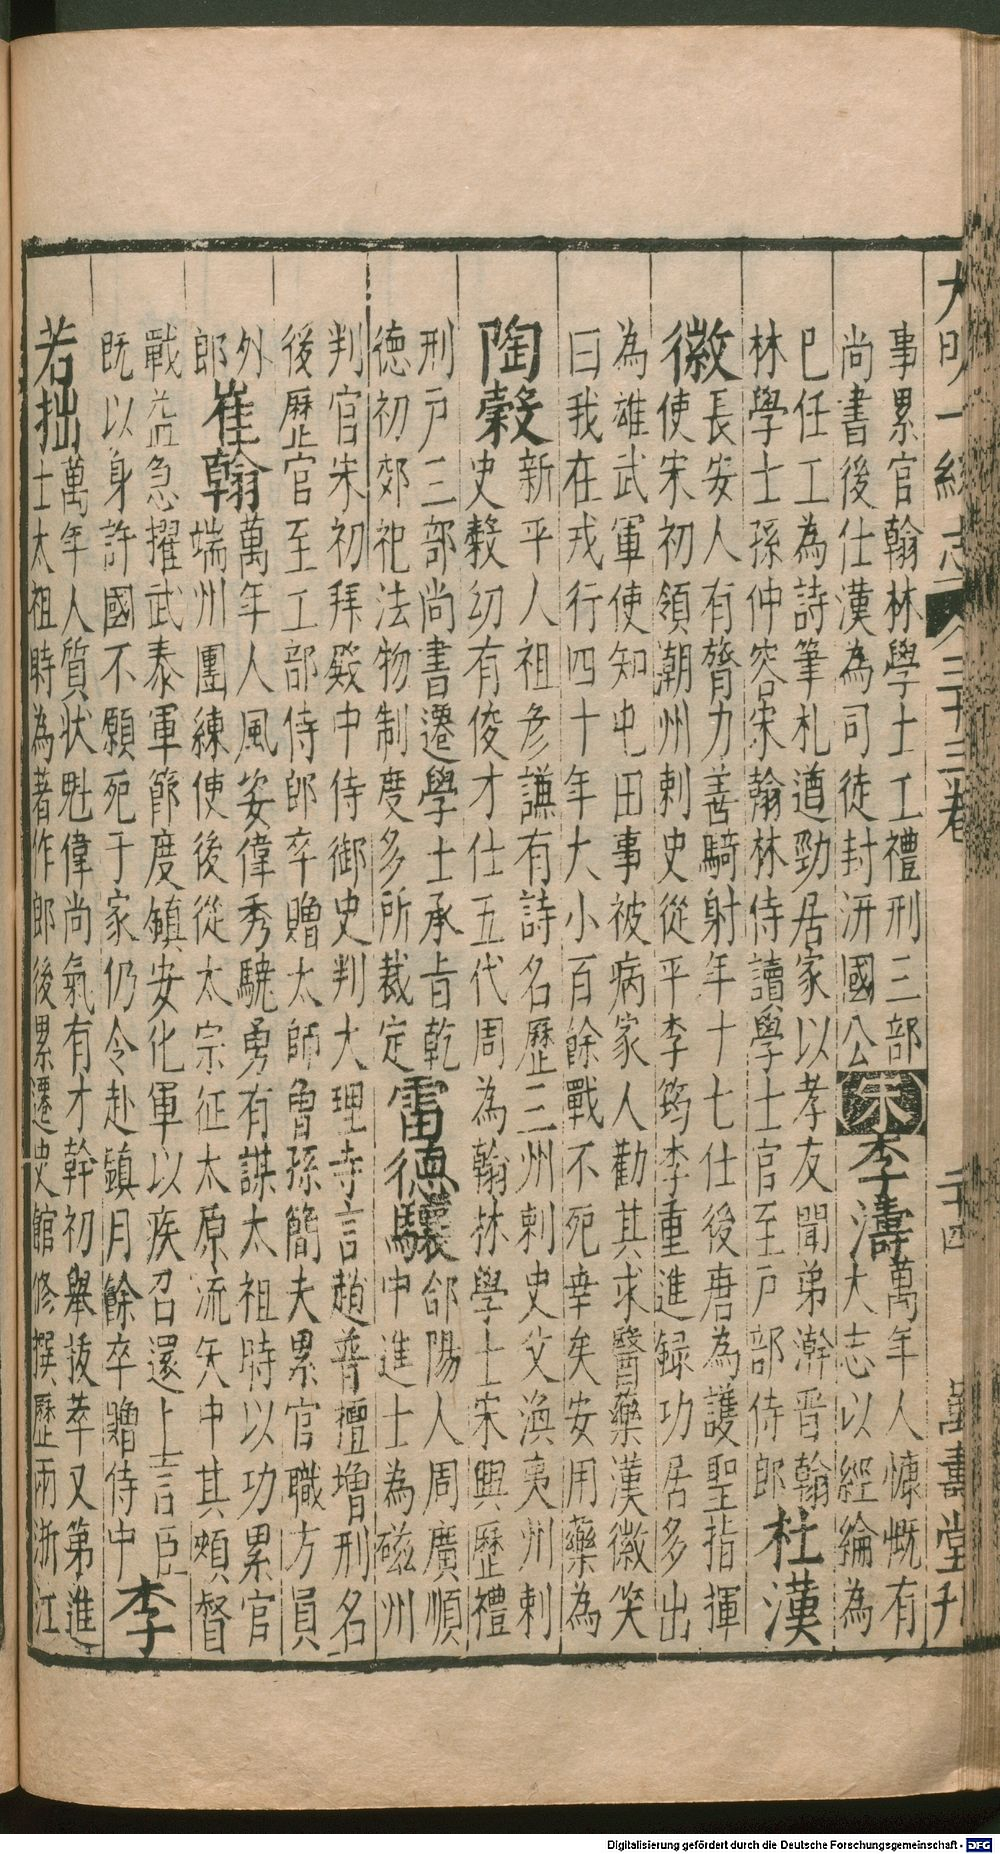 大明一統志 三十三卷 二十四 萬壽堂刊
事累官翰林學士工禮刑三部
尚書後仕漢為司徒封汧國公
宋
李濤
萬年人慷慨有
大志以經綸為
已任工為詩筆札遒勁居家以孝友聞弟澣晉翰
林學士孫仲容宋翰林侍讀學士官至戶部侍郎
杜漢
徽
長安人有膂力善騎射年十七仕後唐為護聖指揮
使宋初領潮州刺史從平李筠李重進録功居多出
為雄武軍使知屯田事被病家人勸其求醫藥漢徽笑
曰我在戎行四十年大小百餘戰不死幸矣安用藥為
陶穀
新平人祖彥謙有詩名歷三州刺史父渙夷州刺
史穀幼有俊才仕五代周為翰林學士宋興歷禮
刑戶三部尚書遷學士承旨乾
德初郊祀法物制度多所裁定
雷德驤
郃陽人周廣順
中進士為磁州
判官宋初拜殿中侍御史判大理寺言趙普擅增刑名
後歷官至工部侍郎卒贈太師曾孫簡夫累官職方員
外
郎
崔翰
萬年人風姿偉秀驍勇有謀太祖時以功累官
端州團練使後從太宗征太原流矢中其頰督
戰益急擢武泰軍節度鎮安化軍以疾召還上言臣
既以身許國不願死于家仍令赴鎮月餘卒贈侍中
李
若拙
萬年人質狀魁偉尚氣有才幹初舉拔萃又第進
士太祖時為著作郎後累遷史館修撰歷兩浙江
Digitalisierung gefördert durch die Deutsche Forschungsgemeinschaft - DFG